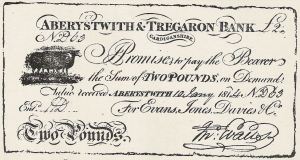 ABERYSTWITH & TREGARON BANK £2.
CARDIGANSHIRE
No 263
I Promise to pay the Bearer
the Sum of TWO POUNDS, on Demand;
Value received ABERYSTWITH 12 Jany 1814 No 263
For Evans, Jones, Davies & Co.
Two Pounds.